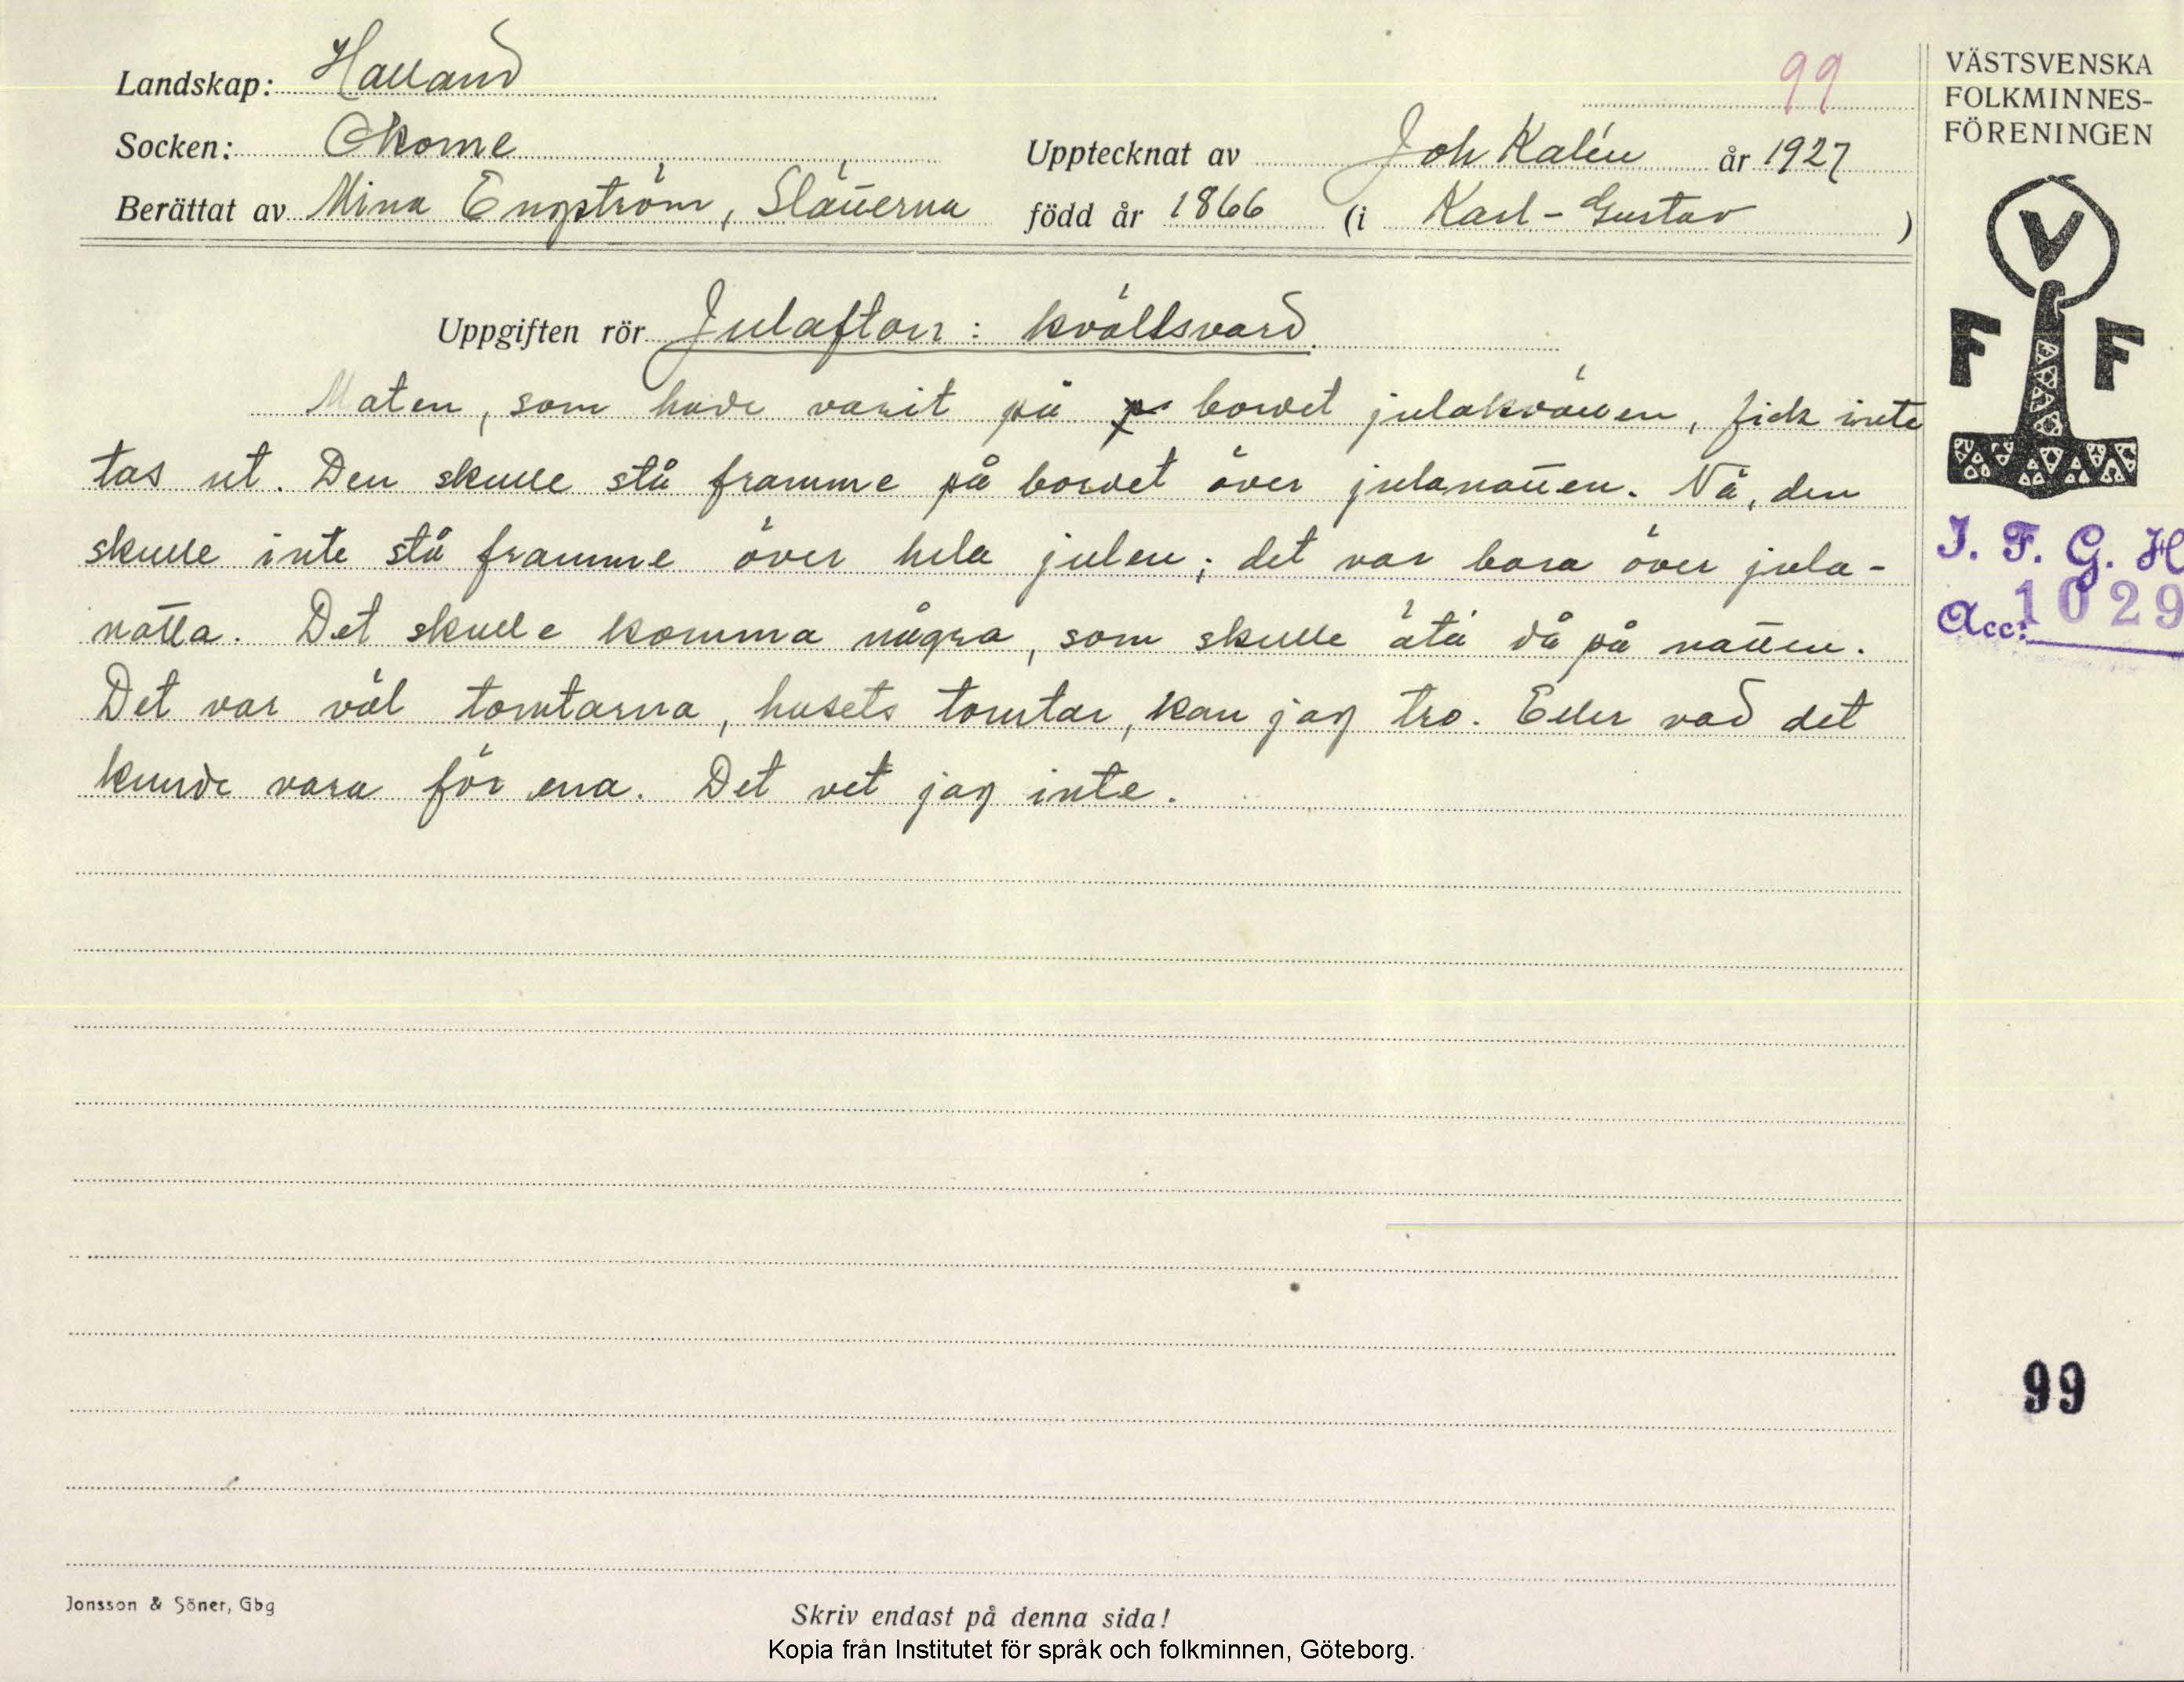 Landskap: Halland
99
VÄSTSVENSKA
FOLKMINNES-
FÖRENINGEN
Socken: Okome
Upptecknat av Joh Kalén år 1927
Berättat av Mina Engström, Slätterna född år 1866 (i Karl-Gustav )
V
F F
Uppgiften rör Julafton: kvällsvard.
Maten, som hade varit på bordet julakvällen, fick inte
tas ut. Den skulle stå framme på bordet över julanatten. Nä, den
skulle inte stå framme över hela julen; det var bara över jula-
natta. Det skulle komma några, som skulle äta då på natten.
Det var väl tomtarna, husets tomtar, kan jag tro. Eller vad det
kunde vara för ena. Det vet jag inte.
I. F. G. H
Acc: 1029
99
Jonsson & Söner, Gbg
Skriv endast på denna sida!
Kopia från Institutet för språk och folkminnen, Göteborg.